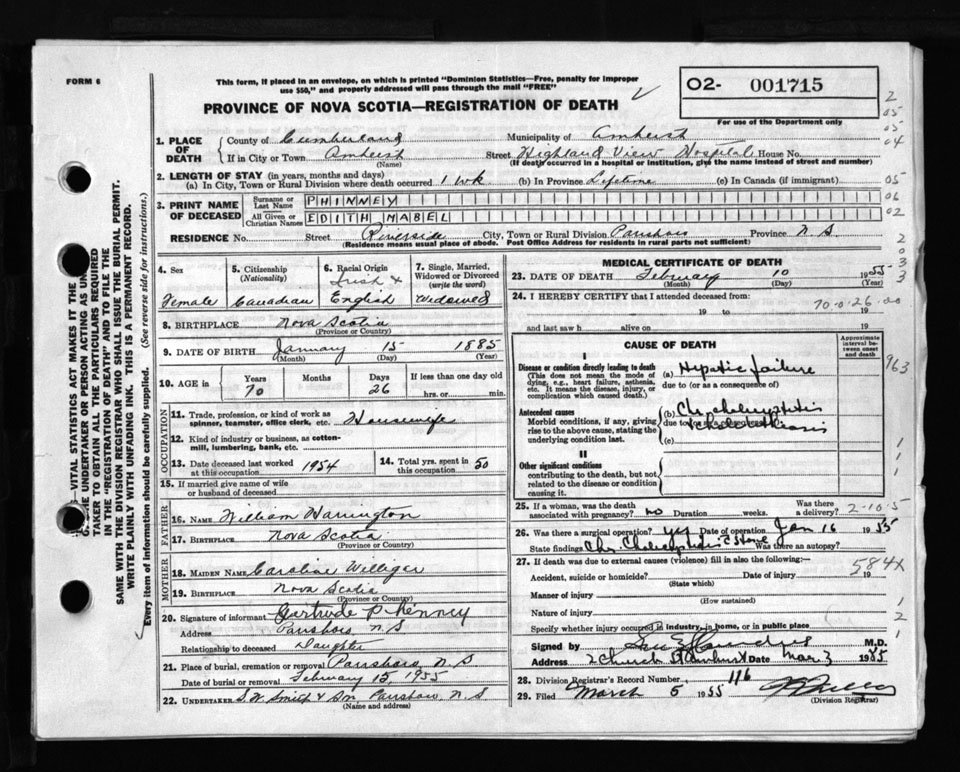 FORM 6
This form, if placed in an envelope, on which is printed "Dominion Statistics—Free, penalty for improper
use $50," and properly addressed will pass through the mail "FREE"
PROVINCE OF NOVA SCOTIA—REGISTRATION OF DEATH
O2- 001715
For use of the Department only
1. PLACE OF DEATH
County of Cumberland Municipality of Amherst
If in City or Town Amherst Street Highland View Hospital House No.
(Name) (If death occurred in a hospital or institution, give the name instead of street and number)
2. LENGTH OF STAY (in years, months and days)
(a) In City, Town or Rural Division where death occurred 1 wk (b) In Province Lifetime (c) In Canada (if immigrant)
3. PRINT NAME OF DECEASED
Surname or Last Name PHINNEY
All Given or Christian Names EDITH MABEL
RESIDENCE No. Street Riverside City, Town or Rural Division Parrsboro Province N S
(Residence means usual place of abode. Post Office Address for residents in rural parts not sufficient)
4. Sex Female
5. Citizenship (Nationality) Canadian
6. Racial Origin Irish & English
7. Single, Married, Widowed or Divorced (write the word) Widowed
8. BIRTHPLACE Nova Scotia
(Province or Country)
9. DATE OF BIRTH January 15 1885
(Month) (Day) (Year)
10. AGE IN Years 70 Months Days 26 If less than one day old hrs. or min.
OCCUPATION
11. Trade, profession, or kind of work as spinner, teamster, office clerk, etc. Housewife
12. Kind of industry or business, as cotton-mill, lumbering, bank, etc.
13. Date deceased last worked at this occupation 1954
14. Total yrs. spent in this occupation 50
15. If married give name of wife or husband of deceased
FATHER
16. NAME William Harrington
17. BIRTHPLACE Nova Scotia
(Province or Country)
MOTHER
18. MAIDEN NAME Caroline
19. BIRTHPLACE Nova Scotia
(Province or Country)
20. Signature of informant Gertrude Phinney
Address Parrsboro N S
Relationship to deceased Daughter
21. Place of burial, cremation or removal Parrsboro, N.S
Date of burial or removal February 15, 1955
22. UNDERTAKER S.W. Smith & Son Parrsboro, N.S
(Name and address)
MEDICAL CERTIFICATE OF DEATH
23. DATE OF DEATH February 10 1955
(Month) (Day)
24. I HEREBY CERTIFY that I attended deceased from:
19 to 19
and last saw h alive on 19
CAUSE OF DEATH
Approximate interval between onset and death
I
Disease or condition directly leading to death
(This does not mean the mode of dying, e.g., heart failure, asthenia, etc. It means the disease, injury, or complication which caused death.)
(a) Hepatic failure
due to (or as a consequence of)
Antecedent causes
Morbid conditions, if any, giving rise to the above cause, stating the underlying condition last.
(b) Chr. cholecystitis
(c)
II
Other significant conditions
contributing to the death, but not related to the disease or condition causing it.
25. If a woman, was the death associated with pregnancy? no Duration weeks. Was there a delivery?
26. Was there a surgical operation? yes Date of operation Jan 16 1955
State findings Chr. Cholecystitis c Stone Was there an autopsy?
27. If death was due to external causes (violence) fill in also the following:
Accident, suicide or homicide? Date of injury 19
(State which)
Manner of injury
(How sustained)
Nature of injury
Specify whether injury occurred in industry, in home, or in public place
Signed by M.D.
Address 2 Church St Amherst Date Mar. 3 1955
28. Division Registrar's Record Number 116
29. Filed March 5 1955
(Division Registrar)
VITAL STATISTICS ACT MAKES IT THE
UNDERTAKER OR PERSON ACTING AS
TAKER TO OBTAIN ALL THE PARTICULARS REQUIRED
IN THE "REGISTRATION OF DEATH" AND TO FILE THE
SAME WITH THE DIVISION REGISTRAR WHO SHALL ISSUE THE BURIAL PERMIT.
WRITE PLAINLY WITH UNFADING INK. THIS IS A PERMANENT RECORD.
Every item of information should be carefully supplied. (See reverse side for instructions.)
2
05
05
04
05
06
02
2
0
3
3
70-0-26-00
963
1
1
2-10-5
584X
1
2
1